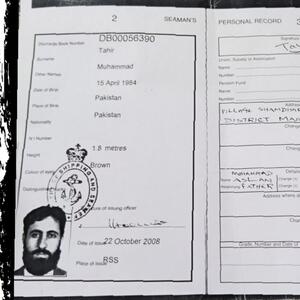 2
SEAMAN'S
Discharge Book Number
DB00056390
Surname
Tahir
Other Names
Muhammad
Date of Birth
15 April 1984
Place of Birth
Pakistan
Nationality
Pakistan
N I Number
Height
1.8 metres
Colour of eyes
Brown
Distinguishing
SHIPPING AND SEAMEN
of issuing officer
Date of Issue
22 October 2008
Place of Issue
RSS
PERSONAL RECORD
3
Signature
Union, Society or Association
Name
Number
Pension Fund
Name
Number
Address
VILLAGE
DISTRICT
Change
Change
MUHAMMAD
Name ASLAM
Change (1)
Relationship FATHER
Change (2)
Address where
Change
Change
Grade, Number and Date of